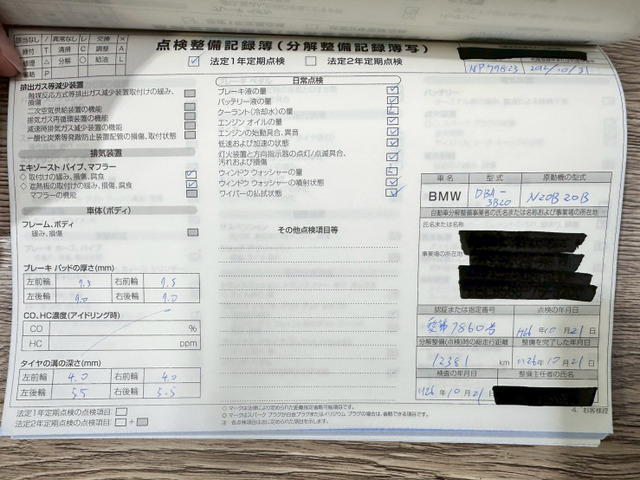 点検整備記録簿(分解整備記録簿写)
該当なし / 異常なし レ 交換 ×
締付 T 清掃 C 調整 A
修理 △ 分解 ○ 給油 L
省略 P
法定1年定期点検 法定2年定期点検
排出ガス等減少装置
触媒反応方式等排出ガス減少装置取付けの緩み、
損傷
二次空気供給装置の機能
排気ガス再循環装置の機能
減速時排気ガス減少装置の機能
一酸化炭素等発散防止装置配管の損傷、取付状態
排気装置
エキゾースト パイプ、マフラー
取付けの緩み、損傷、腐食
◇ 遮熱板の取付けの緩み、損傷、腐食
マフラーの機能
車体(ボディ)
フレーム、ボディ
緩み、損傷
ブレーキ パッドの厚さ(mm)
左前輪 右前輪 9.5
左後輪 9.0 右後輪 9.0
CO、HC濃度(アイドリング時)
CO %
HC ppm
タイヤの溝の深さ(mm)
左前輪 4.0 右前輪 4.0
左後輪 5.5 右後輪 5.5
法定1年定期点検の点検項目:
法定2年定期点検の点検項目: +
日常点検
ブレーキ液の量
バッテリー液の量
クーラント(冷却水)の量
エンジン オイルの量
エンジンの始動具合、異音
低速および加速の状態
灯火装置と方向指示器の点灯/点滅具合、
汚れおよび損傷
ウィンドウ ウォッシャーの量
ウィンドウ ウォッシャーの噴射状態
ワイパーの払拭状態
その他点検項目等
車名 型式 原動機の型式
BMW DBA-3B20 N20B20B
自動車分解整備事業者の氏名または名称および事業場の所在地
氏名または名称
事業場の所在地
認証または指定番号 点検の年月日
7860号 H26年10月21日
分解整備(点検)時の総走行距離 整備を完了した年月日
12381 km H26年10月21日
検査の年月日 整備主任者の氏名
H26年10月21日
4. お客様控